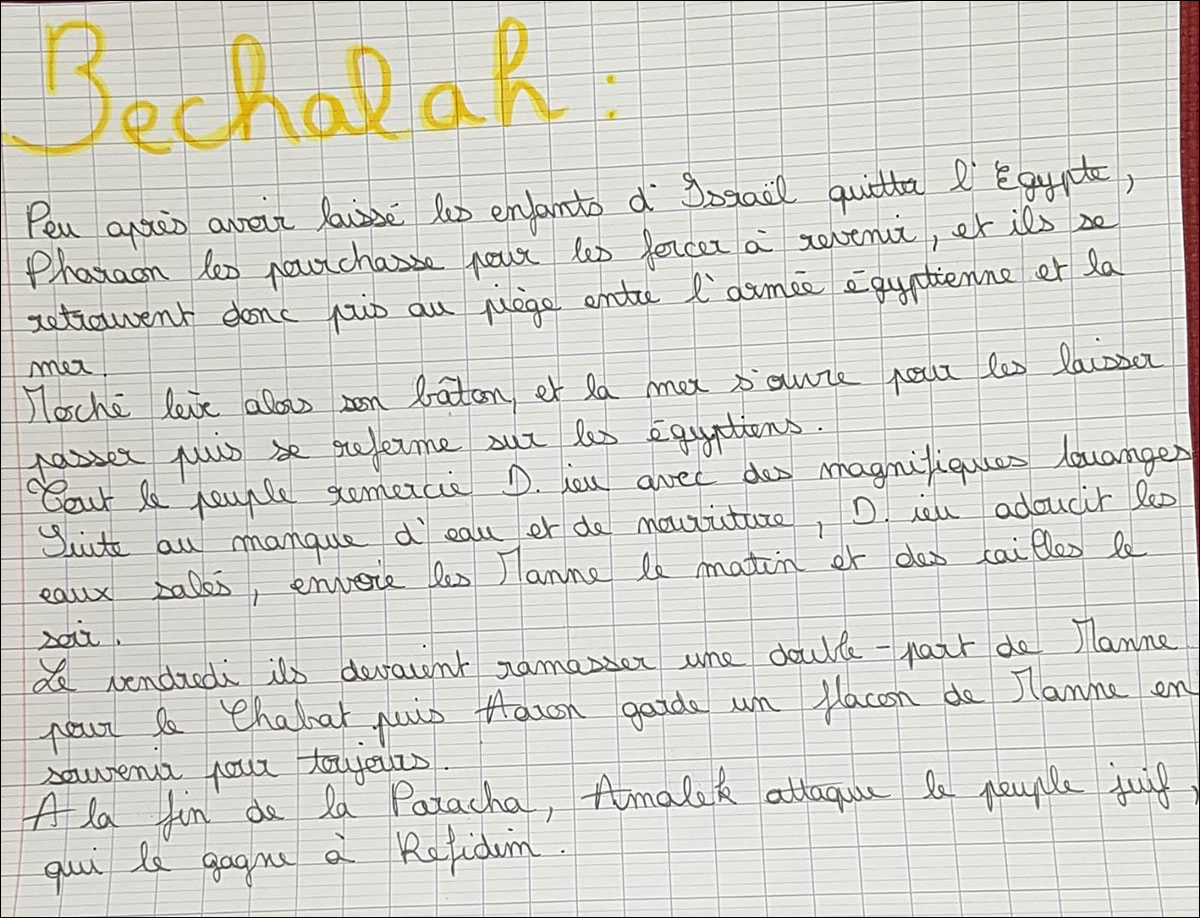 Bechalah :
Peu après avoir laissé les enfants d'Israël quitter l'Egypte,
Pharaon les pourchasse pour les forcer à revenir, et ils se
retrouvent donc pris au piège entre l'armée égyptienne et la
mer.
Moché lève alors son bâton, et la mer s'ouvre pour les laisser
passer puis se referme sur les égyptiens.
Tout le peuple remercie D.ieu avec des magnifiques louanges
Suite au manque d'eau et de nourriture, D.ieu adoucit les
eaux salés, envoie les Manne le matin et des cailles le
soir.
Le vendredi ils devaient ramasser une double-part de Manne
pour le Chabat puis Aaron garde un flacon de Manne en
souvenir pour toujours.
A la fin de la Paracha, Amalek attaque le peuple juif,
qui le gagne à Refidim.